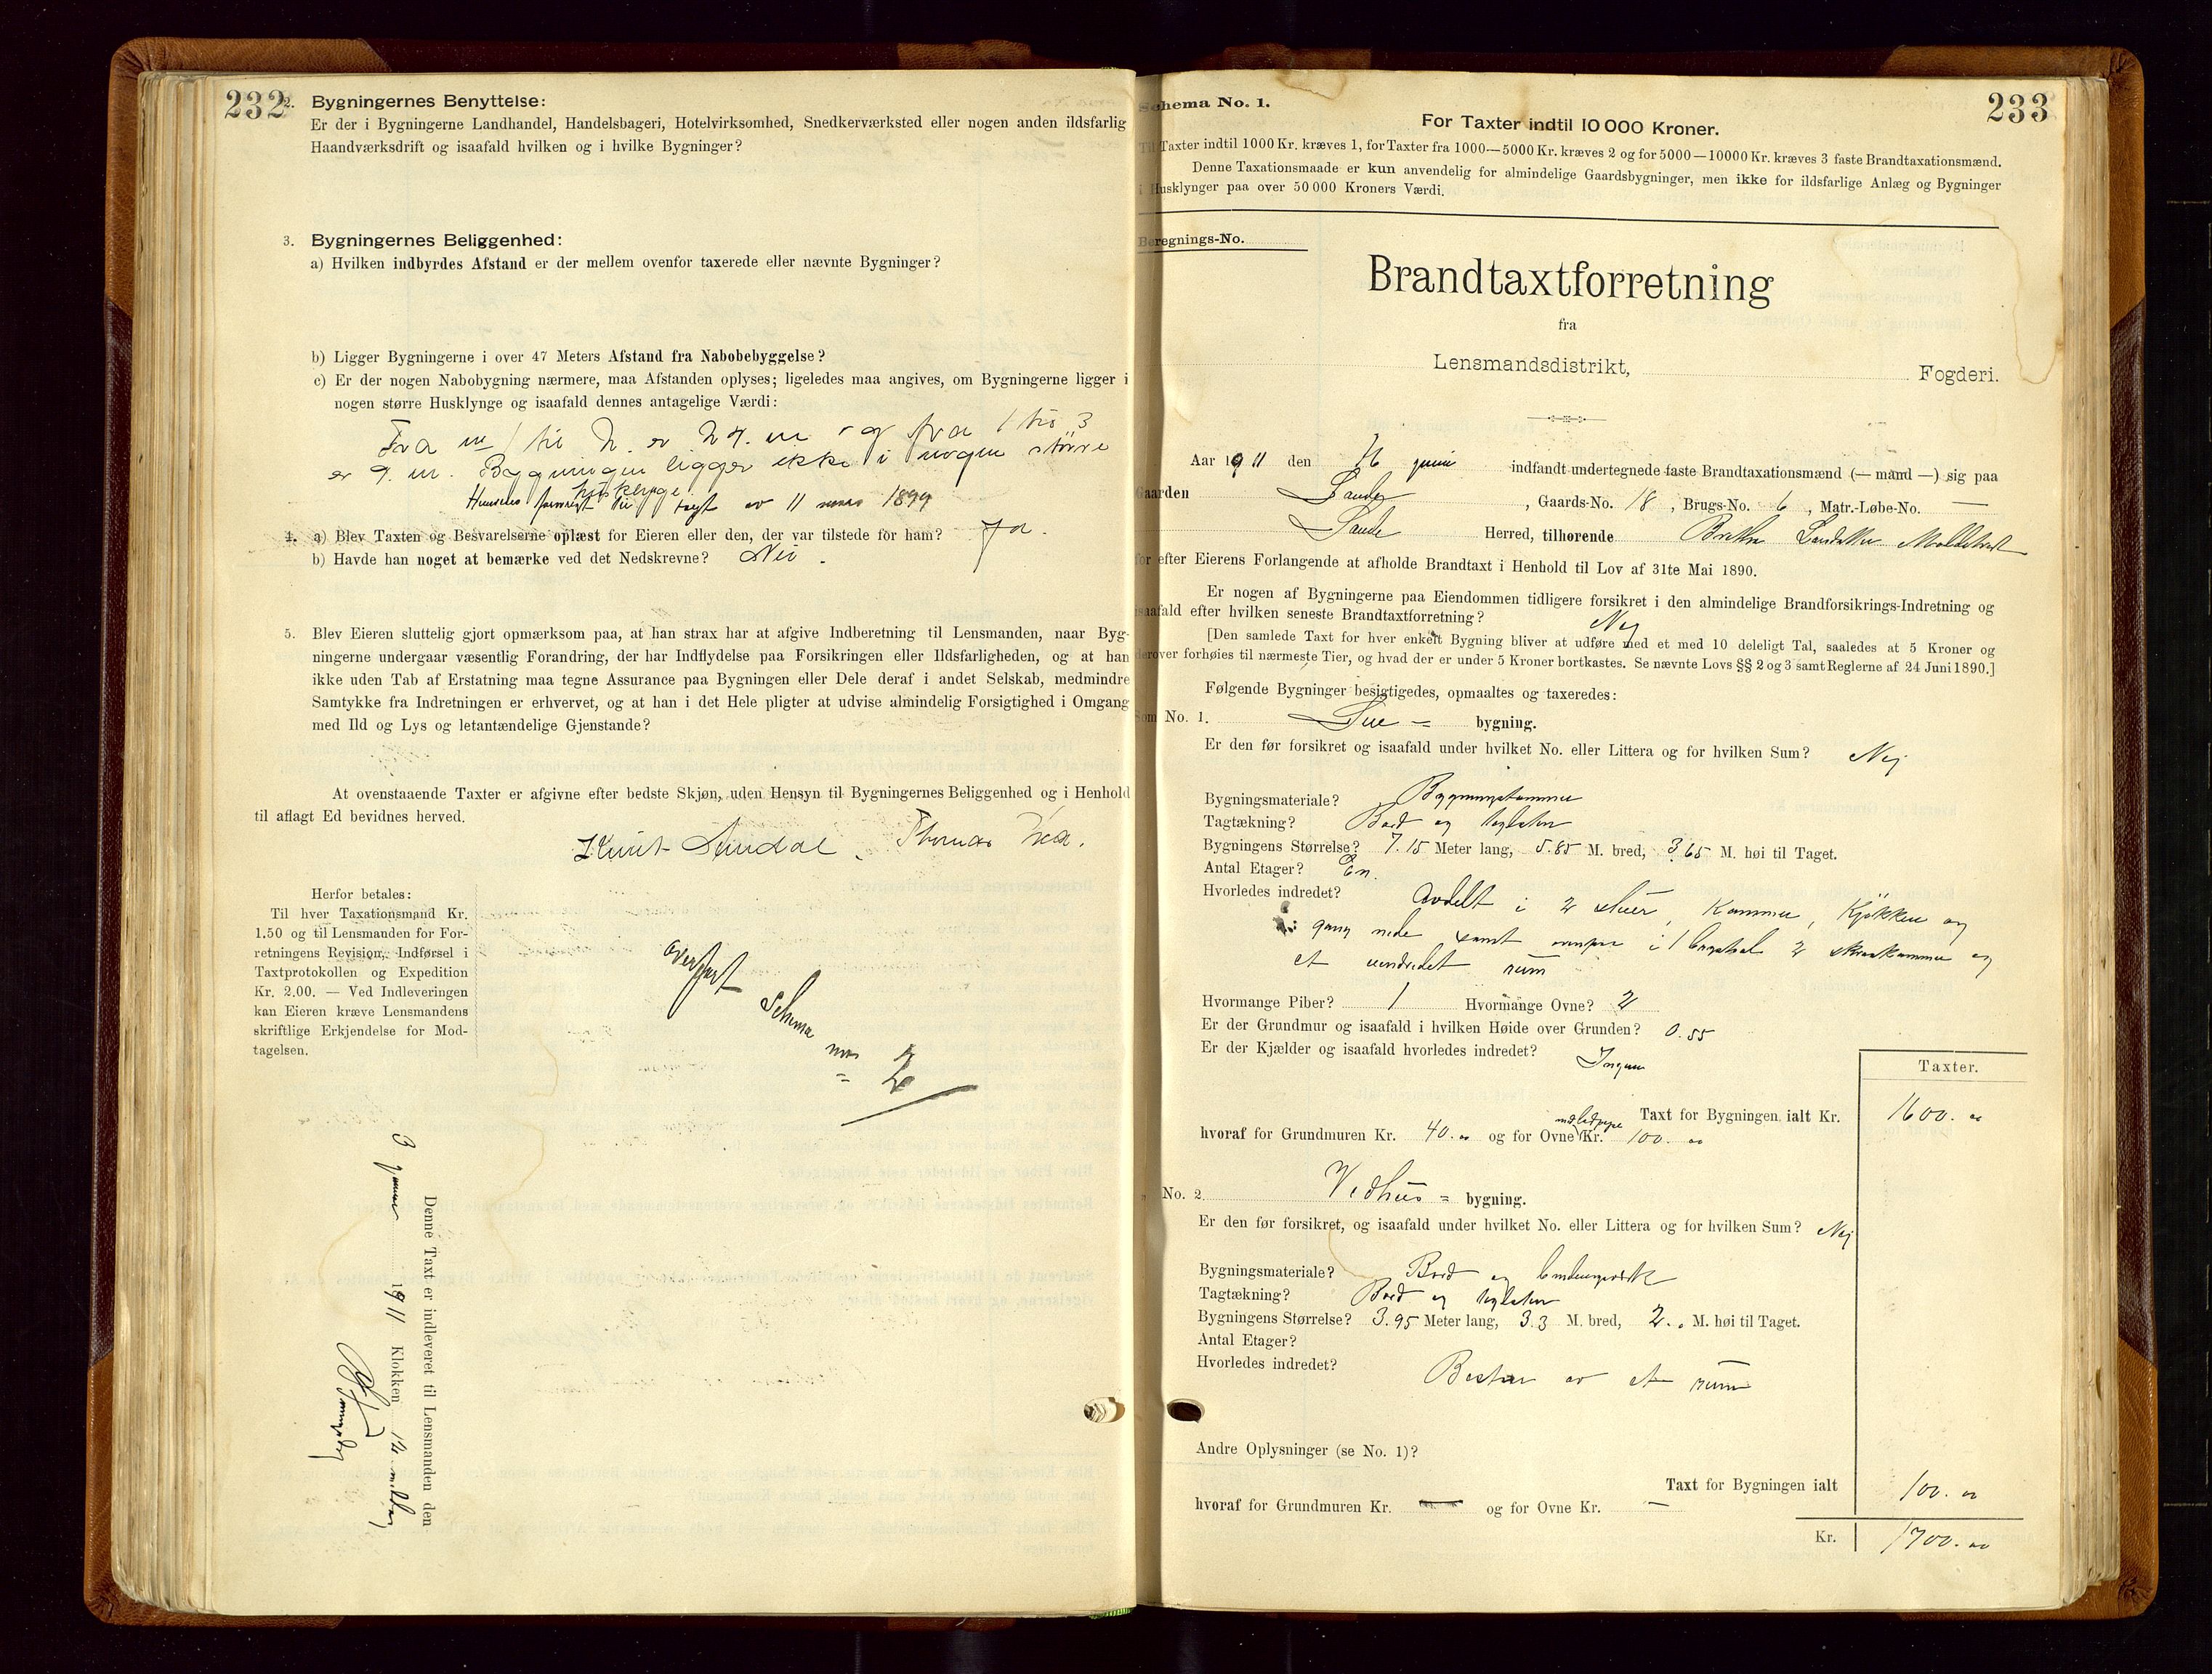 232
2. Bygningernes Benyttelse:
Er der i Bygningerne Landhandel, Handelsbageri, Hotelvirksomhed, Snedkerværksted eller nogen anden ildsfarlig
Haandværksdrift og isaafald hvilken og i hvilke Bygninger?
3. Bygningernes Beliggenhed:
a) Hvilken indbyrdes Afstand er der mellem ovenfor taxerede eller nævnte Bygninger?
b) Ligger Bygningerne i over 47 Meters Afstand fra Nabobebyggelse?
c) Er der nogen Nabobygning nærmere, maa Afstanden oplyses; ligeledes maa angives, om Bygningerne ligger i
nogen større Husklynge og isaafald dennes antagelige Værdi:
Fra 1 til 2 er 27. m og fra 1 til 3
er 9. m. Bygningen ligger ikke i nogen större
husklynge.
til taxt av 11 mars 1899
4. a) Blev Taxten og Besvarelserne oplæst for Eieren eller den, der var tilstede for ham? Ja.
b) Havde han noget at bemærke ved det Nedskrevne? Nei.
5. Blev Eieren sluttelig gjort opmærksom paa, at han strax har at afgive Indberetning til Lensmanden, naar Byg-
ningerne undergaar væsentlig Forandring, der har Indflydelse paa Forsikringen eller Ildsfarligheden, og at han
ikke uden Tab af Erstatning maa tegne Assurance paa Bygningen eller Dele deraf i andet Selskab, medmindre
Samtykke fra Indretningen er erhvervet, og at han i det Hele pligter at udvise almindelig Forsigtighed i Omgang
med Ild og Lys og letantændelige Gjenstande?
At ovenstaaende Taxter er afgivne efter bedste Skjøn, uden Hensyn til Bygningernes Beliggenhed og i Henhold
til aflagt Ed bevidnes herved.
Knut Thomas
Herfor betales:
Til hver Taxationsmand Kr.
1.50 og til Lensmanden for For-
retningens Revision, Indførsel i
Taxtprotokollen og Expedition
Kr. 2.00. — Ved Indleveringen
kan Eieren kræve Lensmandens
skriftlige Erkjendelse for Mod-
tagelsen.
overført Schema 2
Denne Taxt er indleveret til Lensmanden den
3 1911 Klokken 12 middag
233
Schema No. 1.
For Taxter indtil 10000 Kroner.
Til Taxter indtil 1000 Kr. kræves 1, for Taxter fra 1000—5000 Kr. kræves 2 og for 5000—10000 Kr. kræves 3 faste Brandtaxationsmænd.
Denne Taxationsmaade er kun anvendelig for almindelige Gaardsbygninger, men ikke for ildsfarlige Anlæg og Bygninger
i Husklynger paa over 50000 Kroners Værdi.
Beregnings-No.
Brandtaxtforretning
fra
Lensmandsdistrikt, Fogderi.
Aar 1911 den 16 juni indfandt undertegnede faste Brandtaxationsmænd (— mand —) sig paa
Gaarden Sande, Gaards-No. 18, Brugs-No. 6, Matr.-Løbe-No. —
Sande Herred, tilhørende
for efter Eierens Forlangende at afholde Brandtaxt i Henhold til Lov af 31te Mai 1890.
Er nogen af Bygningerne paa Eiendommen tidligere forsikret i den almindelige Brandforsikrings-Indretning og
isaafald efter hvilken seneste Brandtaxtforretning? Nej
[Den samlede Taxt for hver enkelt Bygning bliver at udføre med et med 10 deleligt Tal, saaledes at 5 Kroner og
derover forhøies til nærmeste Tier, og hvad der er under 5 Kroner bortkastes. Se nævnte Lovs §§ 2 og 3 samt Reglerne af 24 Juni 1890.]
Følgende Bygninger besigtigedes, opmaaltes og taxeredes:
Som No. 1. Stue = bygning.
Er den før forsikret og isaafald under hvilket No. eller Littera og for hvilken Sum? Nej
Bygningsmateriale? Bygningstømmer
Tagtækning? Bord og
Bygningens Størrelse? 7.15 Meter lang, 5.85 M. bred, 3.65 M. høi til Taget.
Antal Etager? En.
Hvorledes indredet? Avdelt i 2 stuer, Kammer, Kjøkken og
gang nede samt i 2 skraakammer og
et uindredet rum
Hvormange Piber? 1 Hvormange Ovne? 2
Er der Grundmur og isaafald i hvilken Høide over Grunden? 0.55
Er der Kjælder og isaafald hvorledes indredet? Ingen
Taxter.
Taxt for Bygningen ialt Kr. 1600. oo
hvoraf for Grundmuren Kr. 40. oo og for Ovne Kr. 100. oo
No. 2. Vedhus = bygning.
Er den før forsikret, og isaafald under hvilket No. eller Littera og for hvilken Sum? Nej
Bygningsmateriale? Bord og bindingsverk
Tagtækning? Bord og
Bygningens Størrelse? 3.95 Meter lang, 3.3 M. bred, 2. M. høi til Taget.
Antal Etager?
Hvorledes indredet? Bestaar av et rum
Andre Oplysninger (se No. 1)?
Taxt for Bygningen ialt 100. oo
hvoraf for Grundmuren Kr. — og for Ovne Kr. —
Kr. 1700. oo